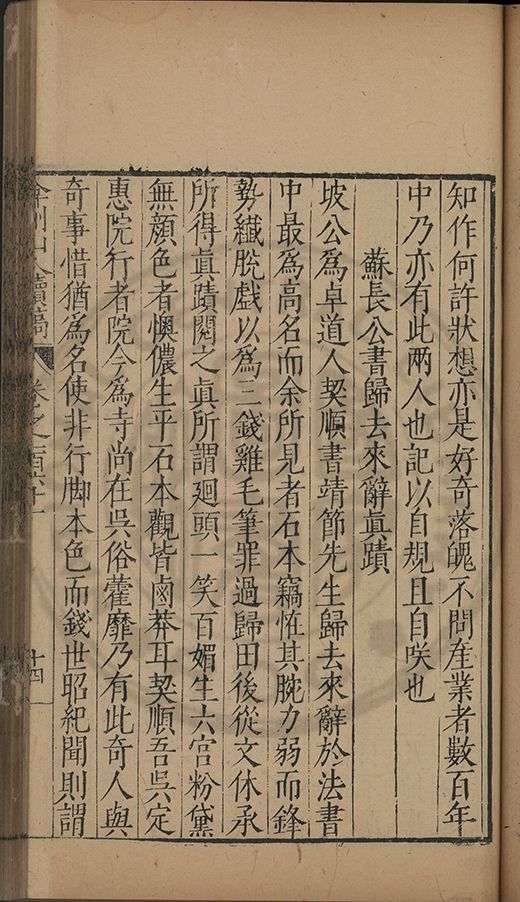 知作何許狀想亦是好奇落魄不問産業者數百年
中乃亦有此兩人也記以自規且自咲也
蘇長公書歸去來辭眞蹟
坡公爲卓道人契順書靖節先生歸去來辭於法書
中最爲高名而余所見者石本竊怪其腕力弱而鋒
勢纖脫戲以爲三錢雞毛筆罪過歸田後從文休承
所得眞蹟閱之眞所謂廻頭一笑百媚生六宮粉黛
無顏色者懊儂生平石本觀皆鹵莽耳契順吾吳定
惠院行者院今爲寺尚在吳俗藿靡乃有此奇人與
奇事惜猶爲名使非行脚本色而錢世昭紀聞則謂
弇州山人續稿
卷之一百六十一
十四